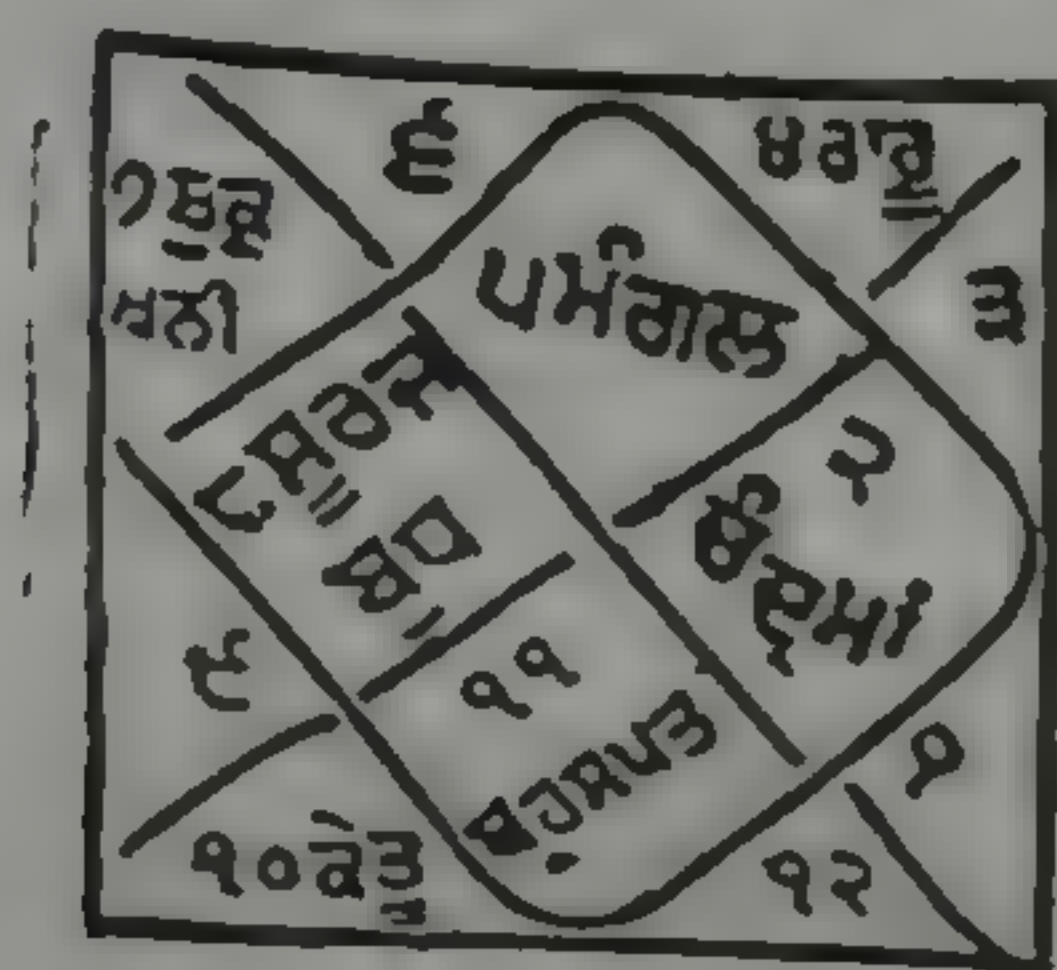 ੬
੪ਰਾਹੂ
੭ਸ਼ੁਕ੍ਰ
ਸਨੀ
੫ਮੰਗਲ
੩
੮ਸੂਰਜ
ਬੁਧ
੨
ਚੰਦ੍ਰਮਾਂ
੯
੧੧
ਬ੍ਰਹਸਪਤ
੧
੧੦ਕੇਤੂ
੧੨